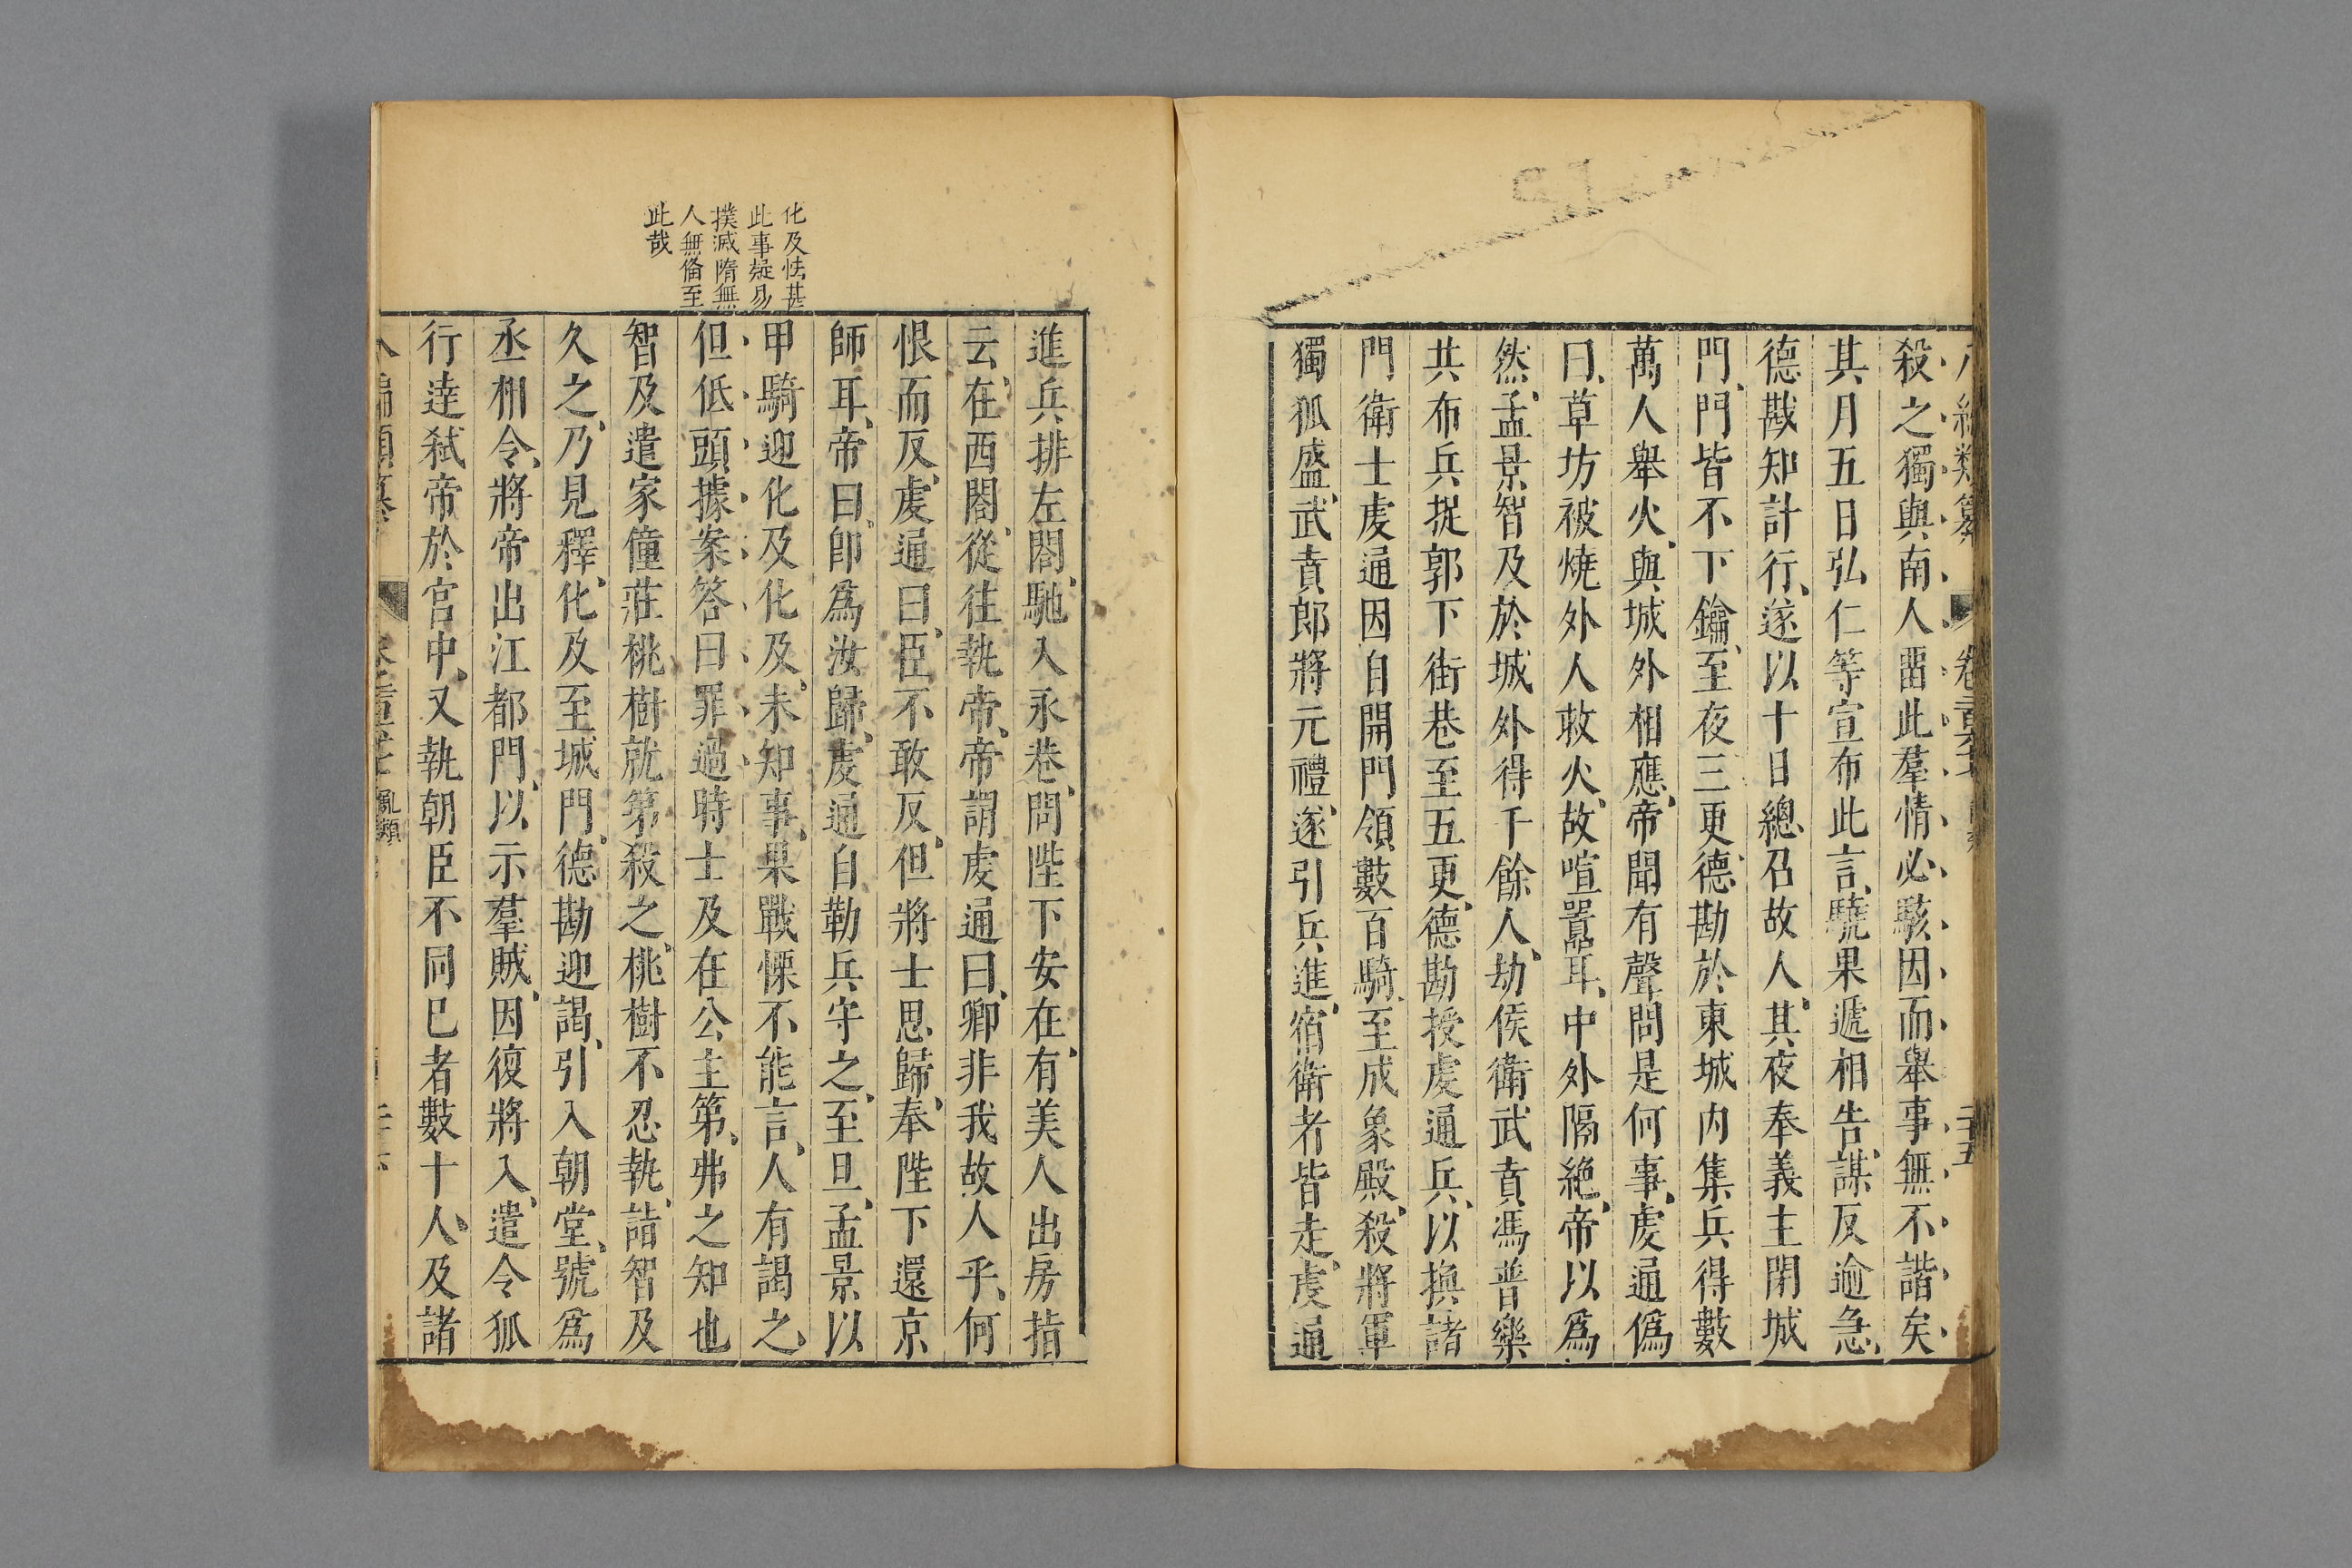 殺之獨與南人畱此羣情必駭因而舉事無不諧矣
其月五日弘仁等宣布此言驍果遞相告謀反逾急
德戡知計行遂以十日總召故人其夜奉義主閉城
門門皆不下鑰至夜三更德勘於東城内集兵得數
萬人舉火與城外相應帝聞有聲問是何事虔通僞
曰草坊被燒外人救火故喧囂耳中外隔絶帝以爲
然孟景智及於城外得千餘人劫侯衛武賁馮普樂
共布兵捉郭下街巷至五更德勘授虔通兵以換諸
門衛士虔通因自開門領數百騎至成象殿殺將軍
獨狐盛武賁郎將元禮遂引兵進宿衛者皆走虔通
進兵排左閤馳入永巷問陛下安在有美人出房指
云在西閤從往執帝帝謂虔通曰卿非我故人乎何
恨而反虔通曰臣不敢反但將士思歸奉陛下還京
師耳帝曰卽爲汝歸虔通自勒兵守之至旦孟景以
甲騎迎化及化及未知事果戰慄不能言人有謁之
但低頭據案答曰罪過時士及在公主第弗之知也
智及遣家僮莊桃樹就第殺之桃樹不忍執詣智及
久之乃見釋化及至城門德勘迎謁引入朝堂號爲
丞相令將帝出江都門以示羣賊因復將入遣令狐
行達弑帝於宮中又執朝臣不同已者數十人及諸
化及怯甚
此事疑易
撲滅隋無
人無俻至
此哉
亂類